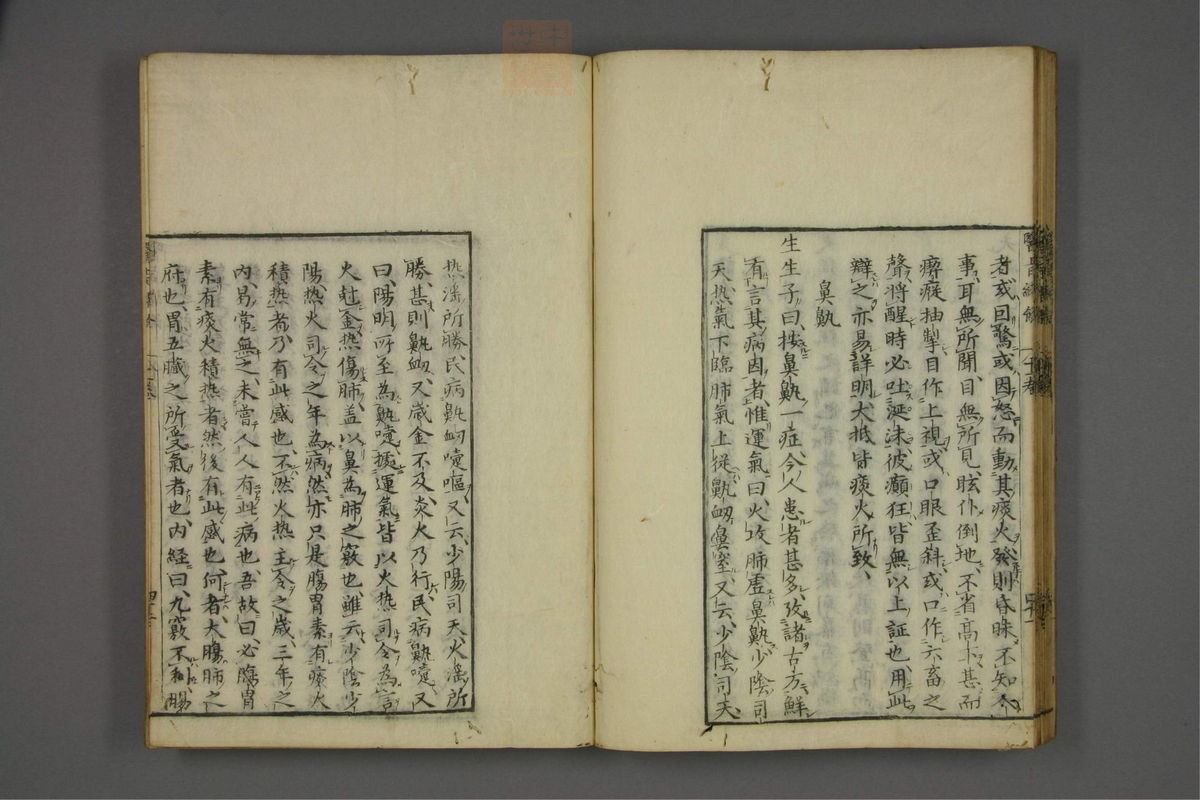 者或因驚或因怒而動其痰火發則昏昧不知人
事耳無所聞目無所見眩仆倒地不省高下甚而
瘈瘲抽掣目作上視或口眼歪斜或口作六畜之
聲將醒時必吐涎沫彼癲狂皆無以上証也用此
辯之亦易詳明大抵皆痰火所致
鼻鼽
生生子曰按鼻鼽一症今人患者甚多攷諸古方鮮
有言其病因者惟運氣曰火攻肺虛鼻鼽少陰司
天熱氣下臨肺氣上從鼽衂鼻窒又云少陰司天
热滛所勝民病鼽衂嚏嘔又云少陽司天火滛所
勝甚則鼽衂又歲金不及炎火乃行民病鼽嚏又
曰陽明所至為鼽嚏據運氣皆以火热司令為言
火尅金热傷肺盖以鼻為肺之竅也雖云少陰少
陽热火司令之年為病然亦只是腸胃素有痰火
積热者乃有此感也不然火热主令之歲三年之
內昜常無之未嘗人人有此病也吾故曰必腸胃
素有痰火積热者然後有此感也何者大腸肺之
府也胃五臟之所受氣者也内経曰九竅不和腸